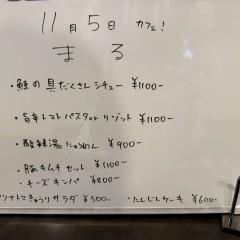 11月5日 カフェ!
まる
・鮭の具だくさんシチュー ¥1100-
・旨辛トマトパスタorリゾット ¥1100-
・酸辣湯にゅうめん ¥900-
・豚キムチセット ¥1100-
・チーズキンパ ¥800-
ツナトマときゅうりサラダ ¥500- ・にんじんケーキ ¥600-